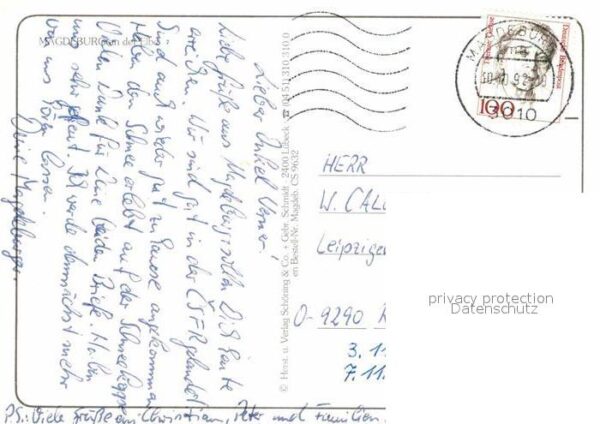 MAGDEBURG an der Elbe
Lieber Onkel Werner!
Liebe Grüße aus Magdeburg sollen Dich heute
erreichen. Wir sind gut in der ČSFR gelandet
Sind auch wieder gut zu Hause angekommen
Haben den Schnee erlebt auf der Schneekoppe
Vielen Dank für Deine beiden Briefe. Haben
uns sehr gefreut. Ich werde demnächst mehr
von uns hören lassen.
Deine Magdeburger.
P.S.: Viele Grüße an Christian, Peter und Familien.
© Herst. u. Verlag Schöning & Co. + Gebr. Schmidt · 2400 Lübeck ☎ (0451) 310 310
en Bestell-Nr. Magdeb. CS 9632
MAGDEBURG
100
3010
HERR
W. CAL
Leipziger
O-9290
3. 1
7. 11.
privacy protection
Datenschutz